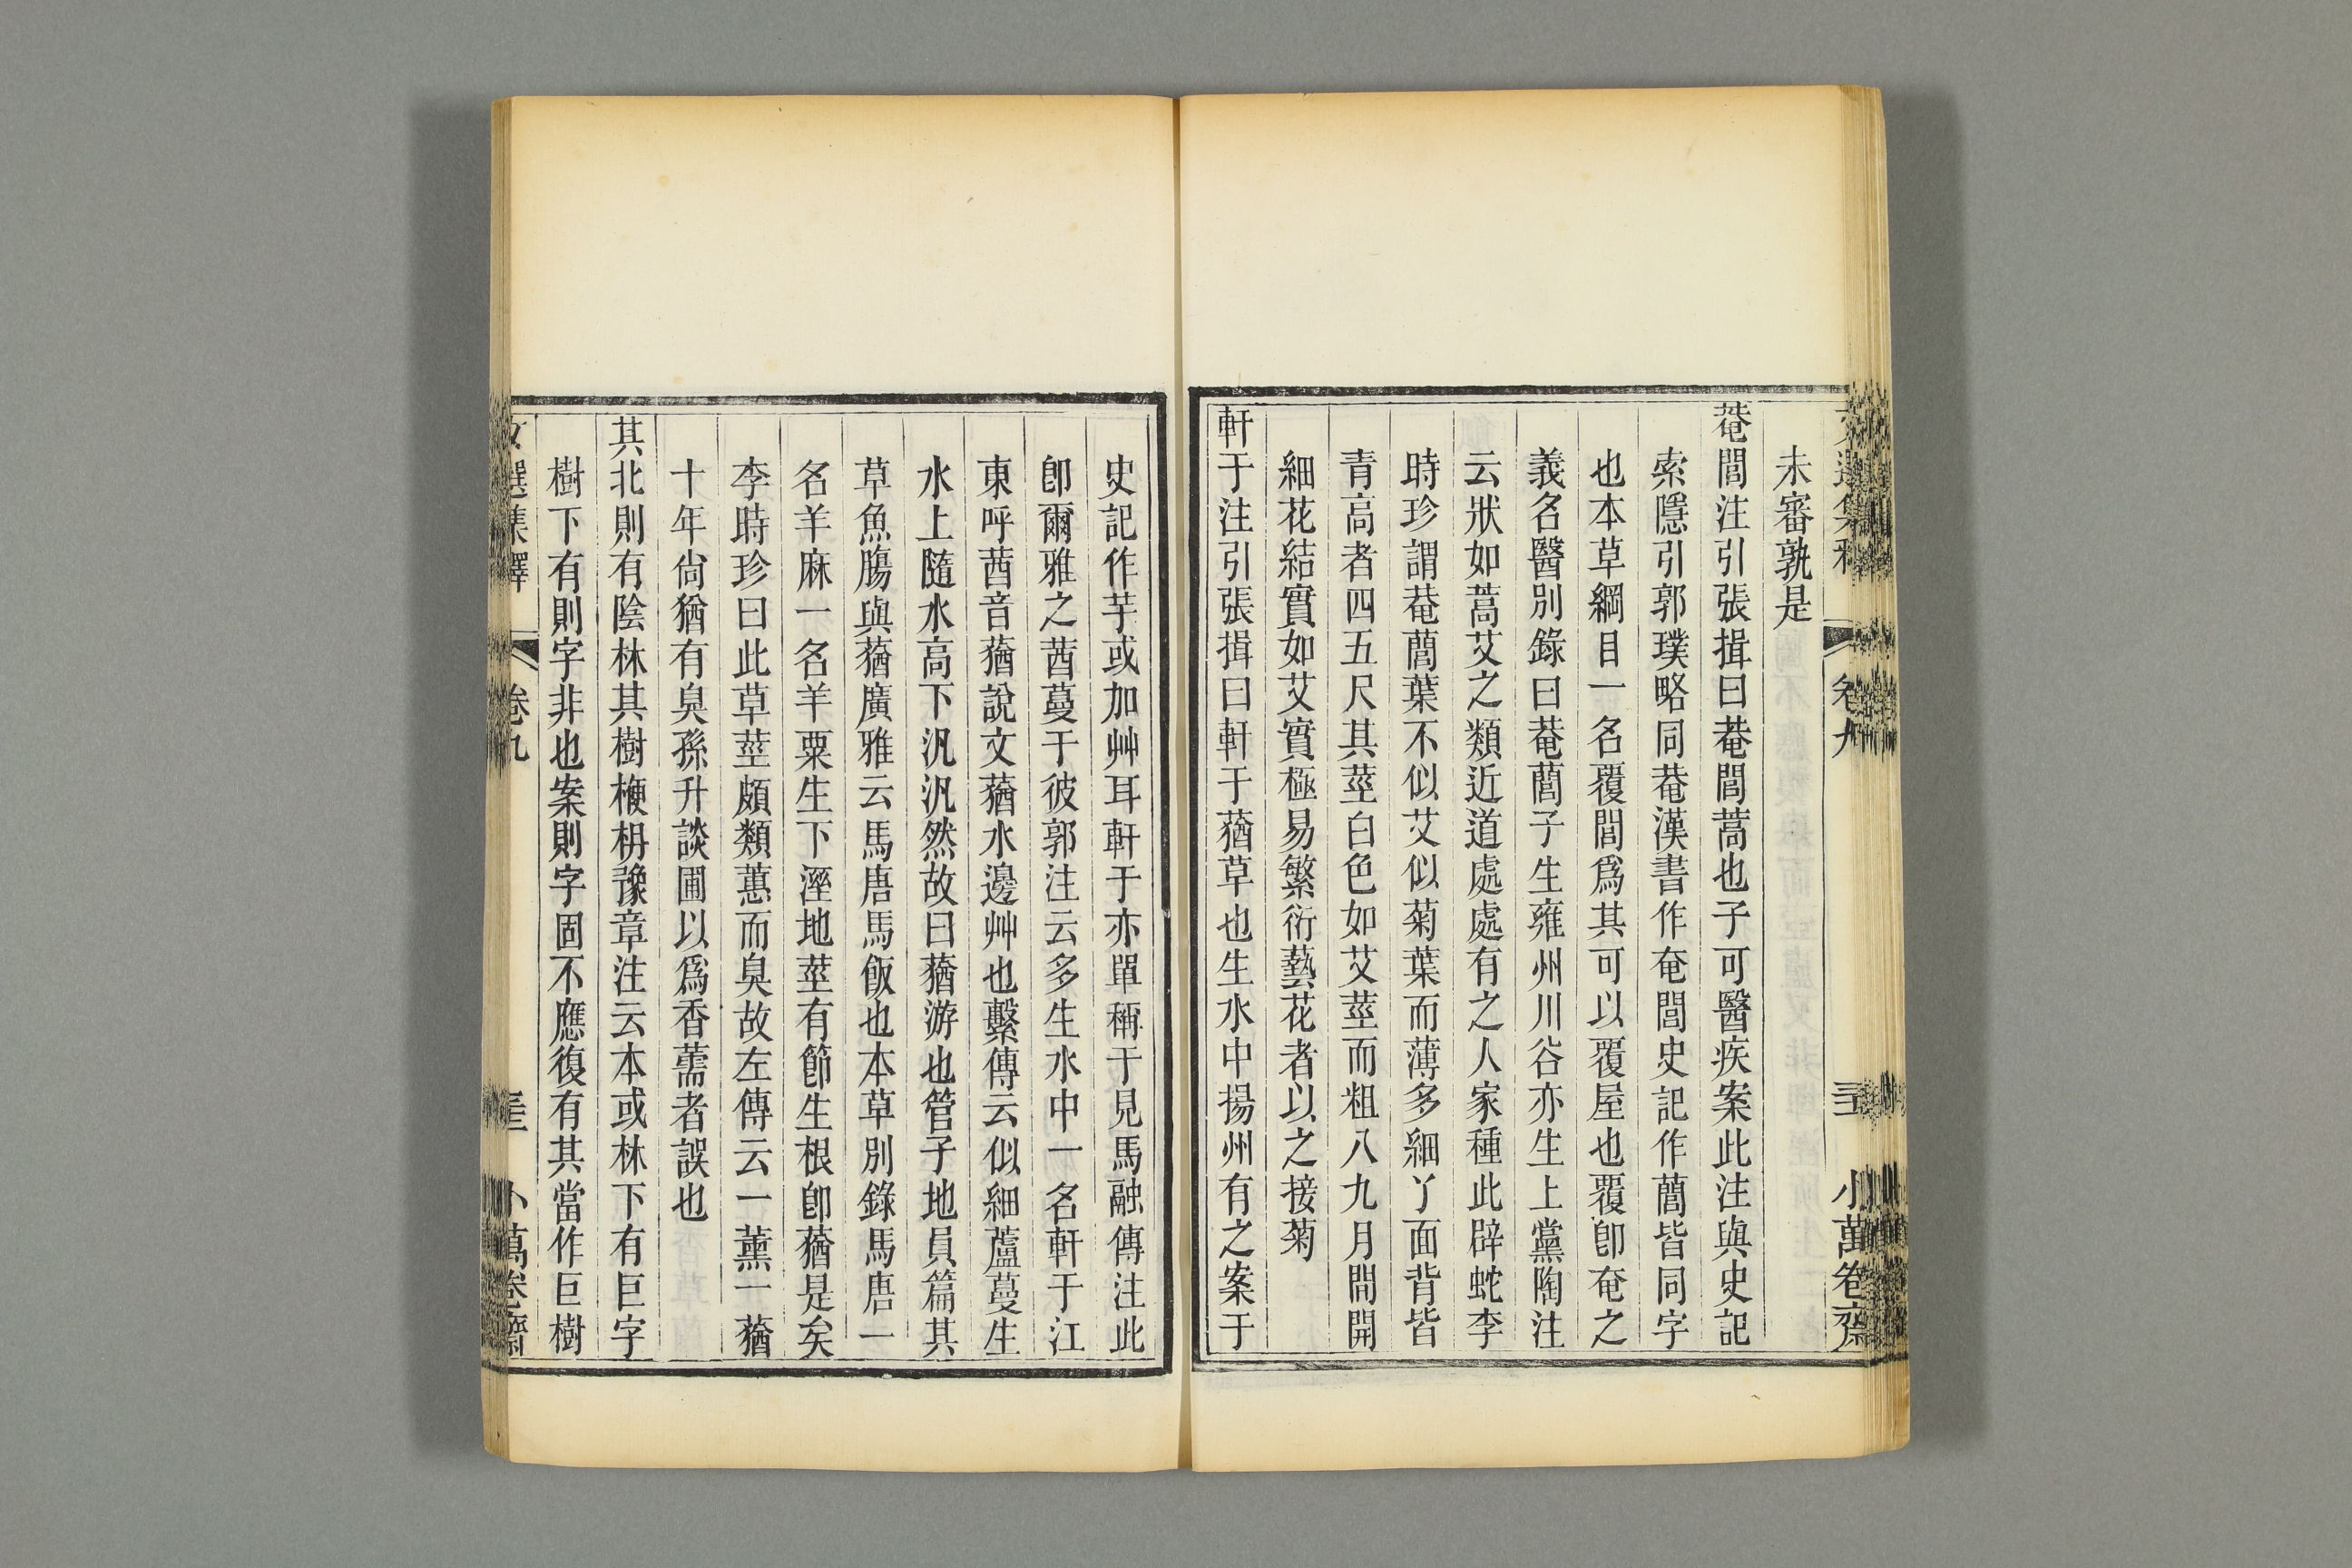 未審孰是
菴閭注引張揖曰菴閭蒿也子可醫疾案此注與史記
索隱引郭璞略同菴漢書作奄閭史記作藺皆同字
也本草綱目一名覆閭爲其可以覆屋也覆卽奄之
義名醫別錄曰菴藺子生雍州川谷亦生上黨陶注
云狀如蒿艾之類近道處處有之人家種此辟蛇李
時珍謂菴藺葉不似艾似菊葉而薄多細丫面背皆
青高者四五尺其莖白色如艾莖而粗八九月開開
細花結實如艾實極易繁衍藝花者以之接菊
軒于注引張揖曰軒于蕕草也生水中揚州有之案于
史記作芋或加艸耳軒于亦單稱于見馬融傳注此
卽爾雅之茜蔓于彼郭注云多生水中一名軒于江
東呼茜音蕕說文蕕水邊艸也繫傳云似細蘆蔓生
水上隨水高下汎汎然故曰蕕游也管子地員篇其
草魚腸與蕕廣雅云馬唐馬飯也本草別錄馬唐一
名羊麻一名羊粟生下溼地莖有節生根卽蕕是矣
李時珍曰此草莖頗類蕙而臭故左傳云一薰一蕕
十年尚猶有臭孫升談圃以爲香薷者誤也
其北則有陰林其樹楩枬豫章注云本或林下有巨字
樹下有則字非也案則字固不應復有其當作巨樹
文選集釋
卷九
小萬卷齋